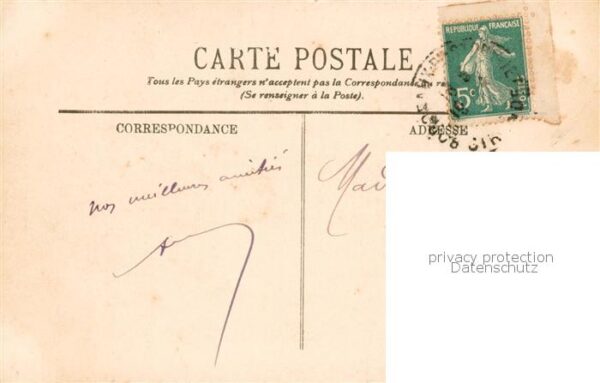 RÉPUBLIQUE FRANÇAISE
5c
CARTE POSTALE
Tous les Pays étrangers n'acceptent pas la Correspondance au
(Se renseigner à la Poste).
CORRESPONDANCE
ADRESSE
nos meilleures amitiés
Mad
privacy protection
Datenschutz